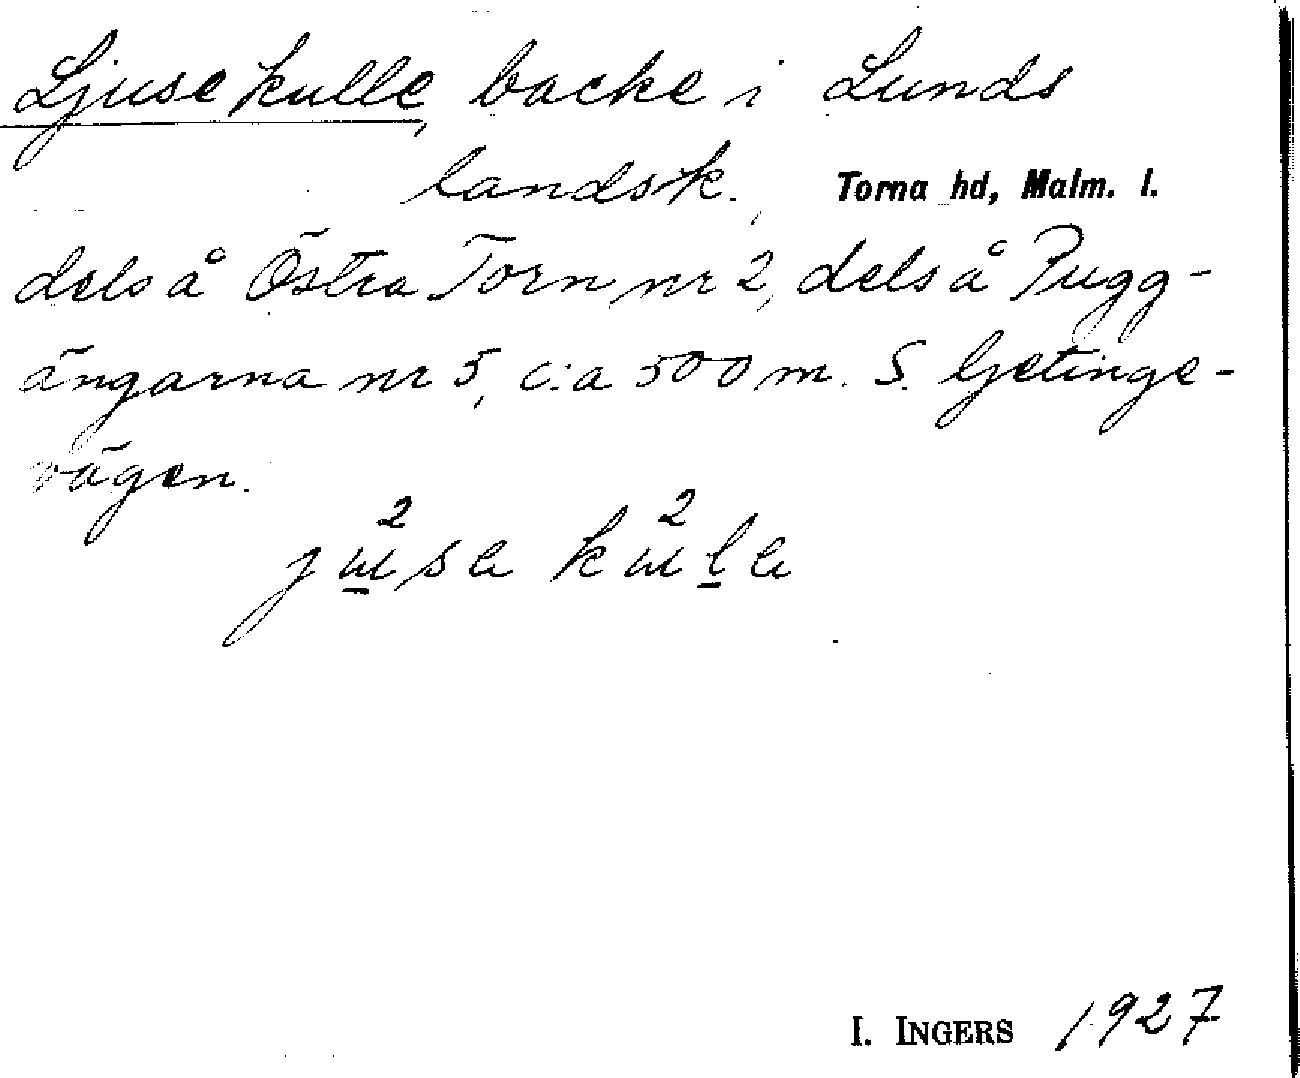 Ljuse kulle, backe i Lunds
landsk. Torna hd, Malm. l.
dels å Östra Torn nr 2, dels å Pugg-
ängarna nr 5, c:a 500 m. S. Getinge-
vägen.
I. INGERS 1927